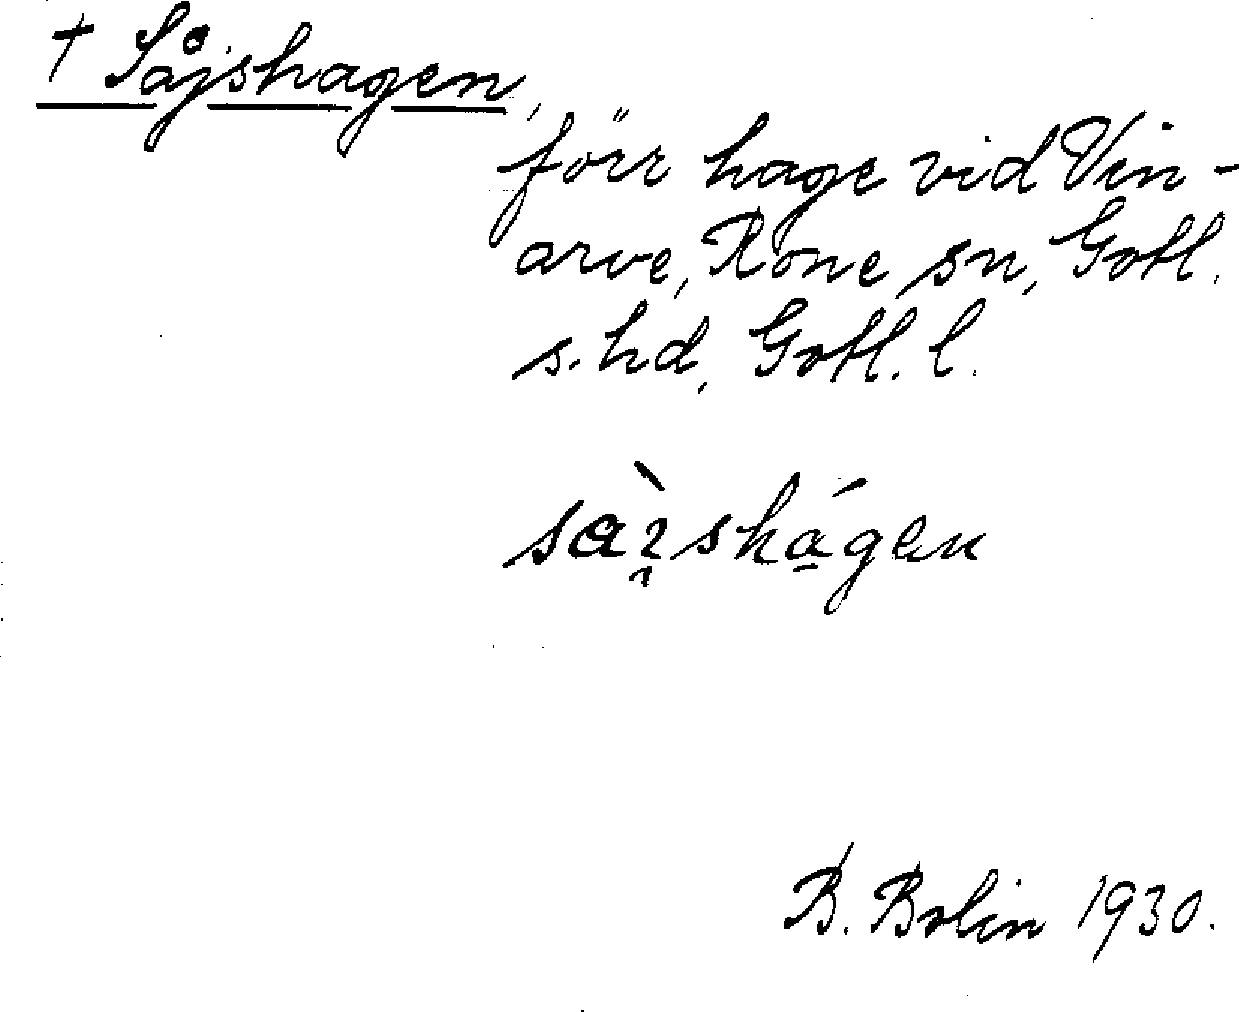 † Såjshagen,
förr hage vid Vin-
arve, Rone sn, Gotl.
s. hd, Gotl. l.
sàꝛ̯shá̱gen
B. Bolin 1930.